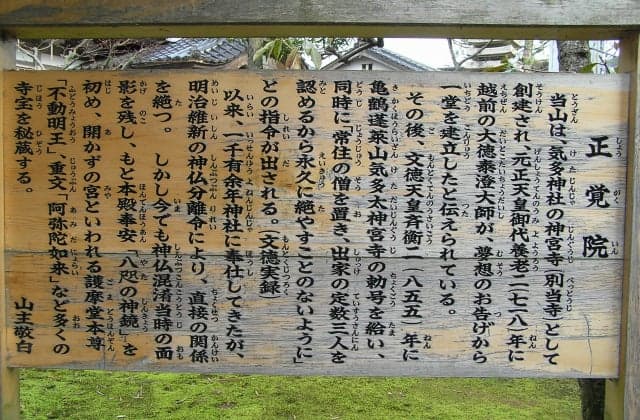 正覚院
当山は、気多神社の神宮寺（別当寺）として
創建され、元正天皇御代養老二（七一八）年に
越前の大徳泰澄大師が、夢想のお告げから
一堂を建立したと伝えられている。
その後、文徳天皇斉衡二（八五五）年に
亀鶴蓬莱山気多太神宮寺の勅号を給い、
同時に常住の僧を置き、出家の定数三人を
認めるから永久に絶やすことのないように」
との指令が出される。（文徳実録）
以来、一千有余年神社に奉仕してきたが、
明治維新の神仏分離令により、直接の関係
を絶つ。　しかし今でも神仏混淆当時の面
影を残し、もと本殿奉安「八咫の神鏡」を
初め、開かずの宮といわれる護摩堂本尊
「不動明王」、重文「阿弥陀如来」など多くの
寺宝を秘蔵する。
山主敬白